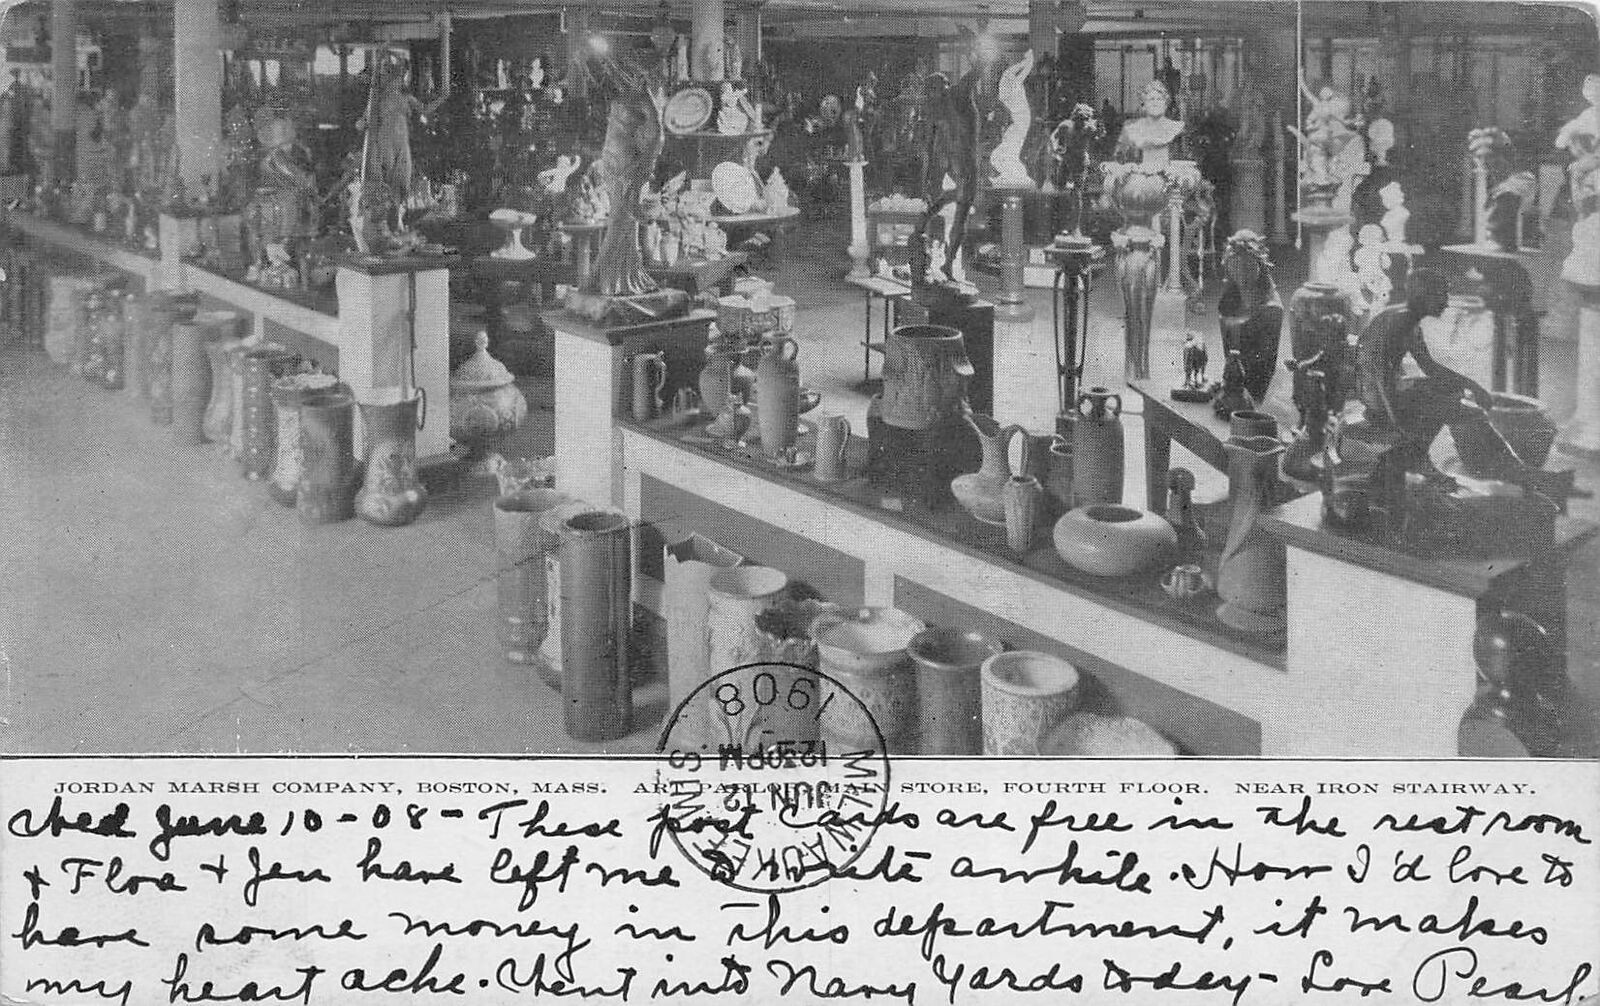 1908
12 30 PM
JUN 12
MILWAUKEE WIS.
JORDAN MARSH COMPANY, BOSTON, MASS. ART PARLOR, MAIN STORE, FOURTH FLOOR. NEAR IRON STAIRWAY.
Wed June 10-08- These post cards are free in the rest room
+ Floa + Jen have left me to write awhile. How I'd love to
have some money in this department, it makes
my heart ache. Went into Navy Yards today- Love Pearl.